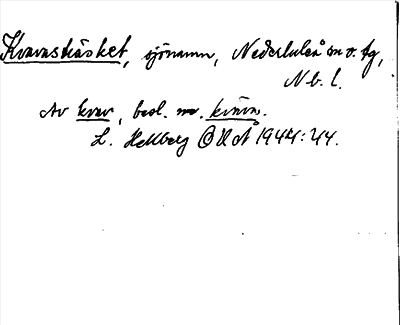 Kvarnsträsket, sjönamn, Nederluleå sn o. tg,
Nb. l.
Av kvar, besl. m.
L. Hellberg OUÅ 1944: 44.